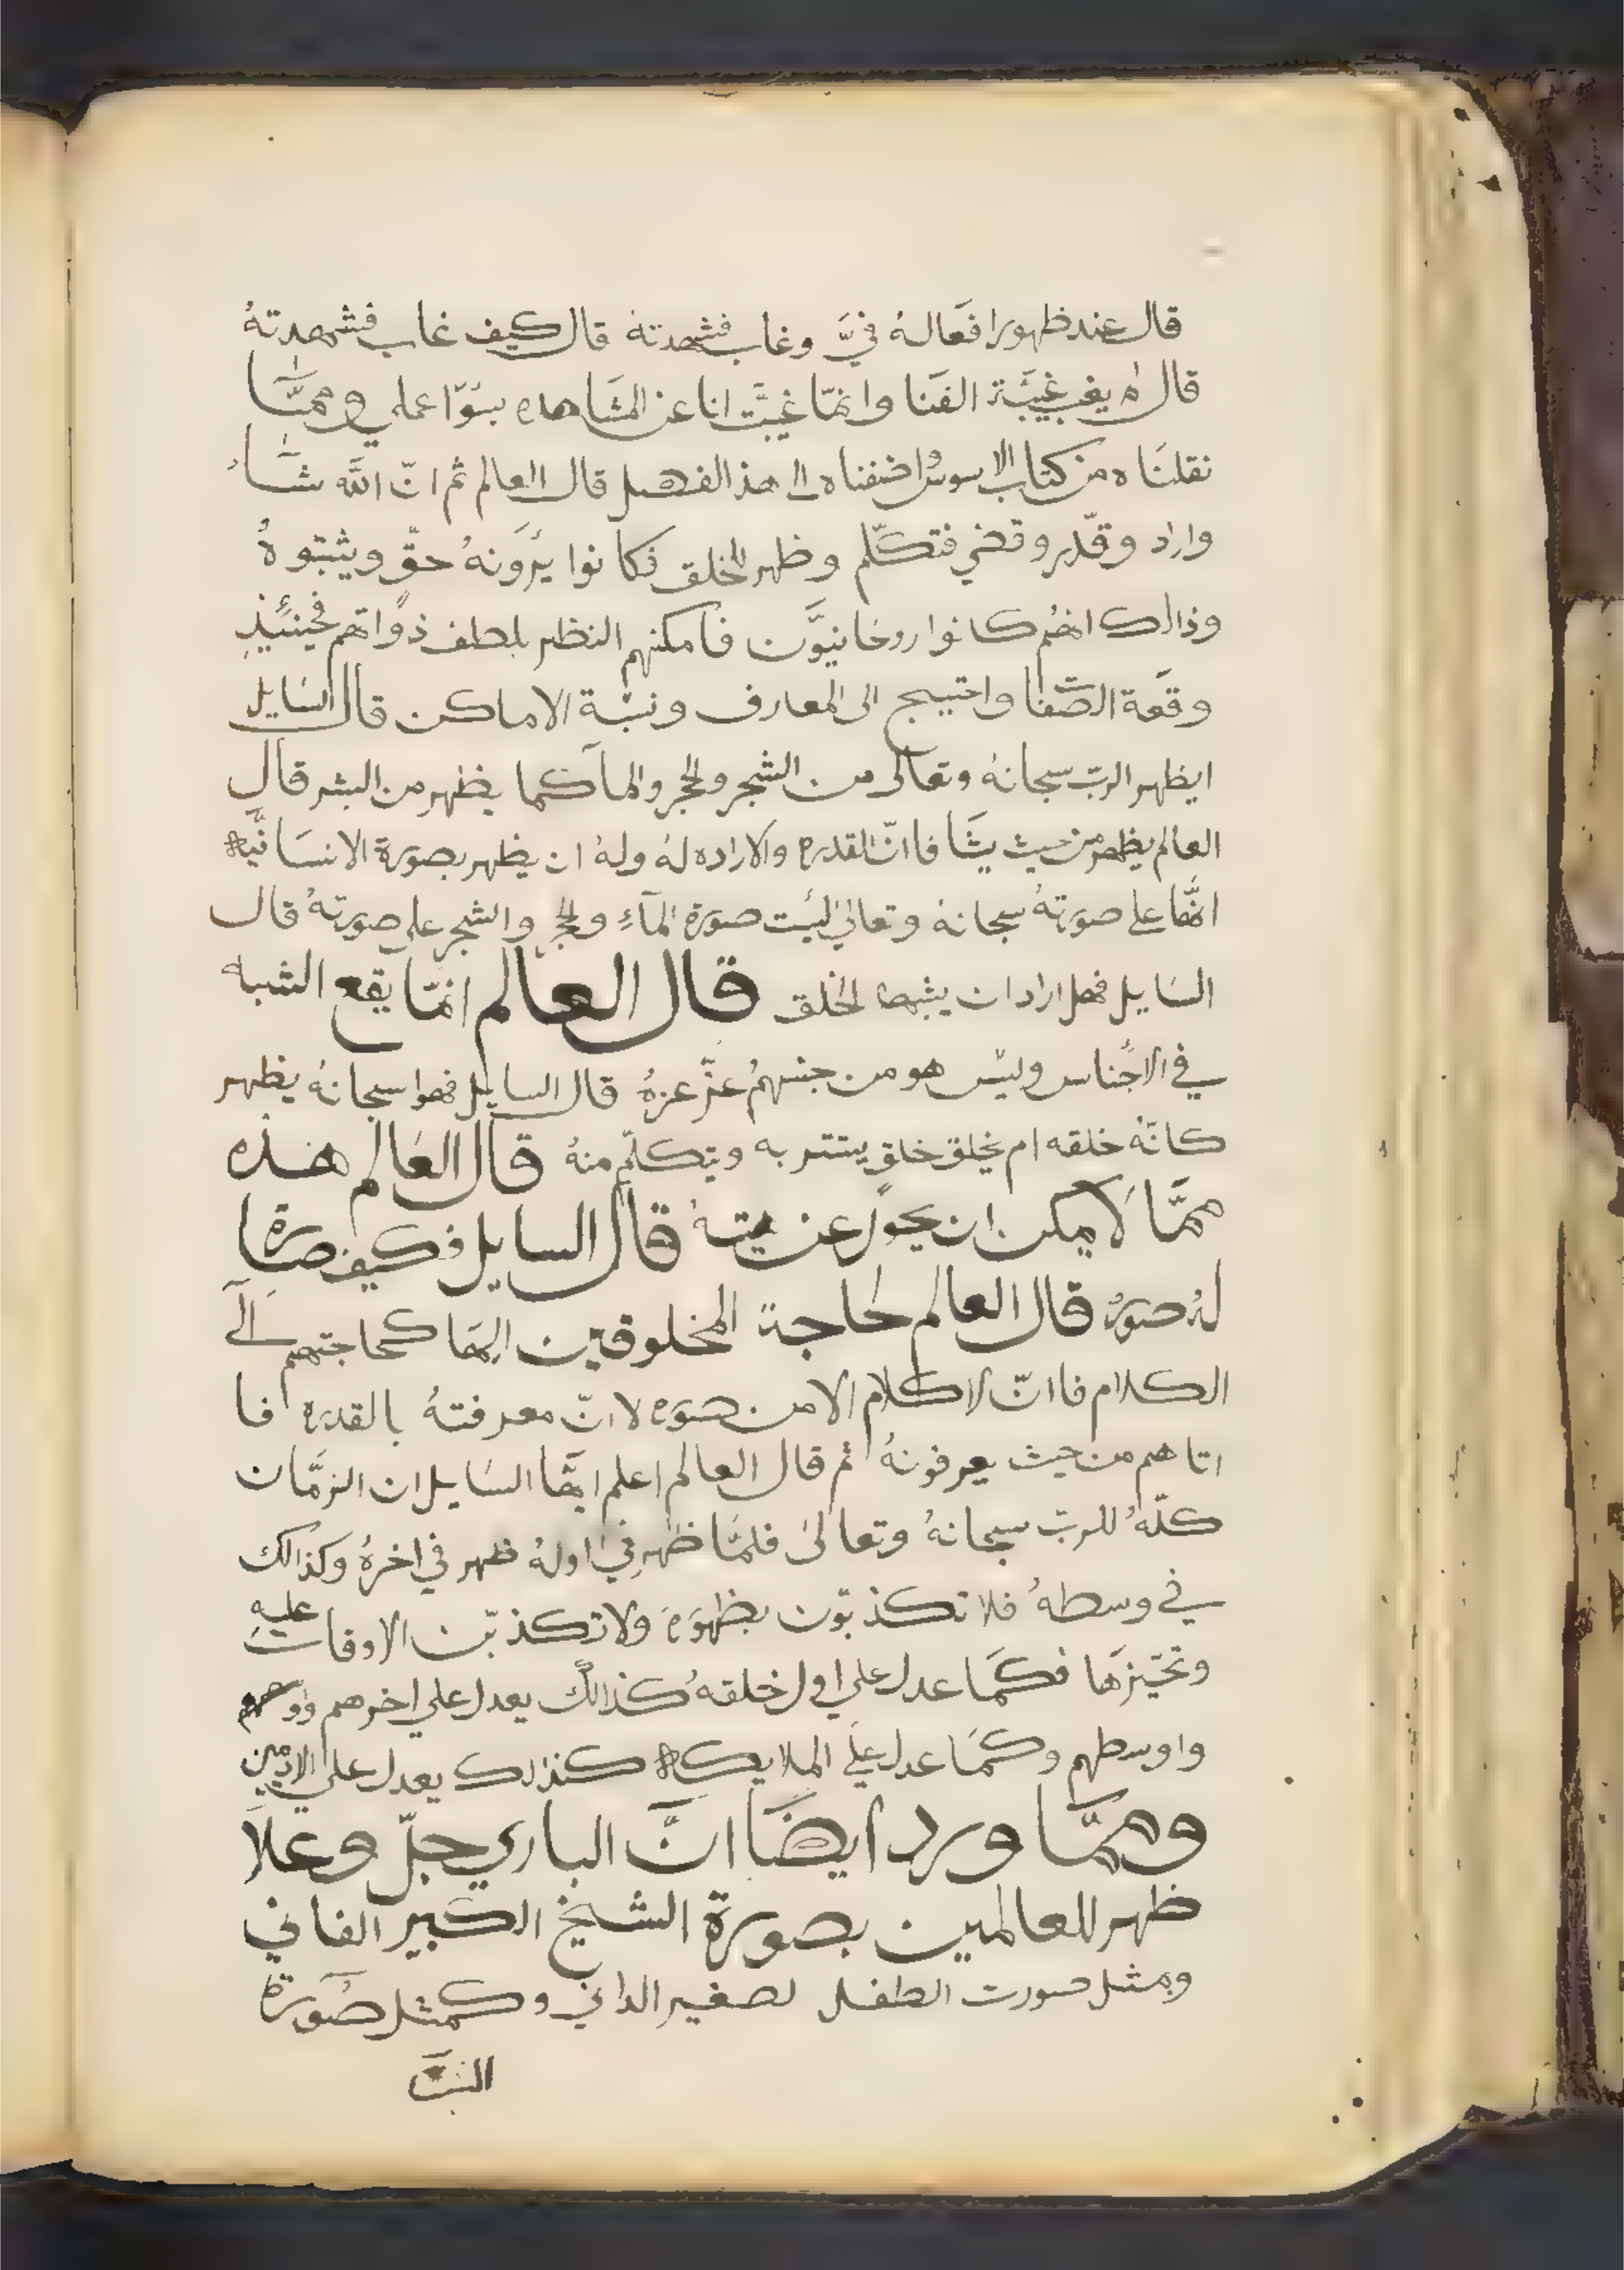 قال عند ظهور افعاله فيَّ وغاب فشهدته قال كيف غاب فشهدتهُ
قال لم يغب غيبَة الفنا وانمّا غيَّبت انا عن المشَاهده بسوّا عملي وممَّا
نقلنَاه من كتاب الاسوس اضفناه الى هذ الفصل قال العالم ثم انّ اللّه شَاءُ
واراد وقدّر وقضي فتكلّم وظهر للخلق فكانوا يرَونهُ حقّ ويثبتوهُ
وذالك انهُم كانوا روحانيوَّن فامكنهم النظر بلطف ذواتهم فحينئِذٍ
وقعَة الصّفا واحتيج الى المعارف ونبّة الاماكن قال السَايل
ايظهر الربّ سبحانهُ وتعالى من الشجر والحجر والمآ كما يظهر من البشر قال
العالم يظهر من حيث يشَا فاانّ القدره والاراده لهُ ولهُ ان يظهر بصورَة الانسَانيَّة
انهَّا على صورتهُ سبحانهُ وتعالى ليَست صورَة المآءِ والحجر والشجر على صورتهُ قال
السَايل فهل اراد ان يشبها الخلق قال العالم انمّا يقع الشبه
في الاجناس وليس هو من جنسهمُ عزّ عزهُ قال السايل فهوا سبحانهُ يظهر
كانّهُ خلقه ام يخلق خلقٍ يستتر به ويتكلّم منهُ قال العَالم هذه
ممَّا لَا يمكن ان يجوز عن قال السايل فكيف صارة
لهُ صورَه قال العالم لحاجة المخلوقين اليهَا كحاجتهم الَى
الكلام فاانّ لا كلام الا من صورَه لانّ معرفتهُ بالقدرَه فا
اتاهم من حيث يعرفونهُ ثم قال العالم اعلم ايهَّا السَايل ان الزمَّان
كلّهُ للربّ سبحانهُ وتعالىَ فلمَّا ظهر في اولهُ ظهر في اخرهُ وكذالك
في وسطهُ فلا تكذبوّن بظهورَه ولا تكذبّن الاوقات عليه
وتحيّزهَا فكمَا عدل علي اول خلقهُ كذالك يعدل علي اخرهم
واوسطهم وكمَا عدل علي الملايكة كذالك يعدل علي الادميين
وممَّا ورد ايضَا انَّ الباري جلّ وعلاَ
ظهر للعالمين بصورة الشيخ الكبير الفاني
وبمثل صورت الطفل لصغير الداني وكمثل صُورَة
الشبَّ